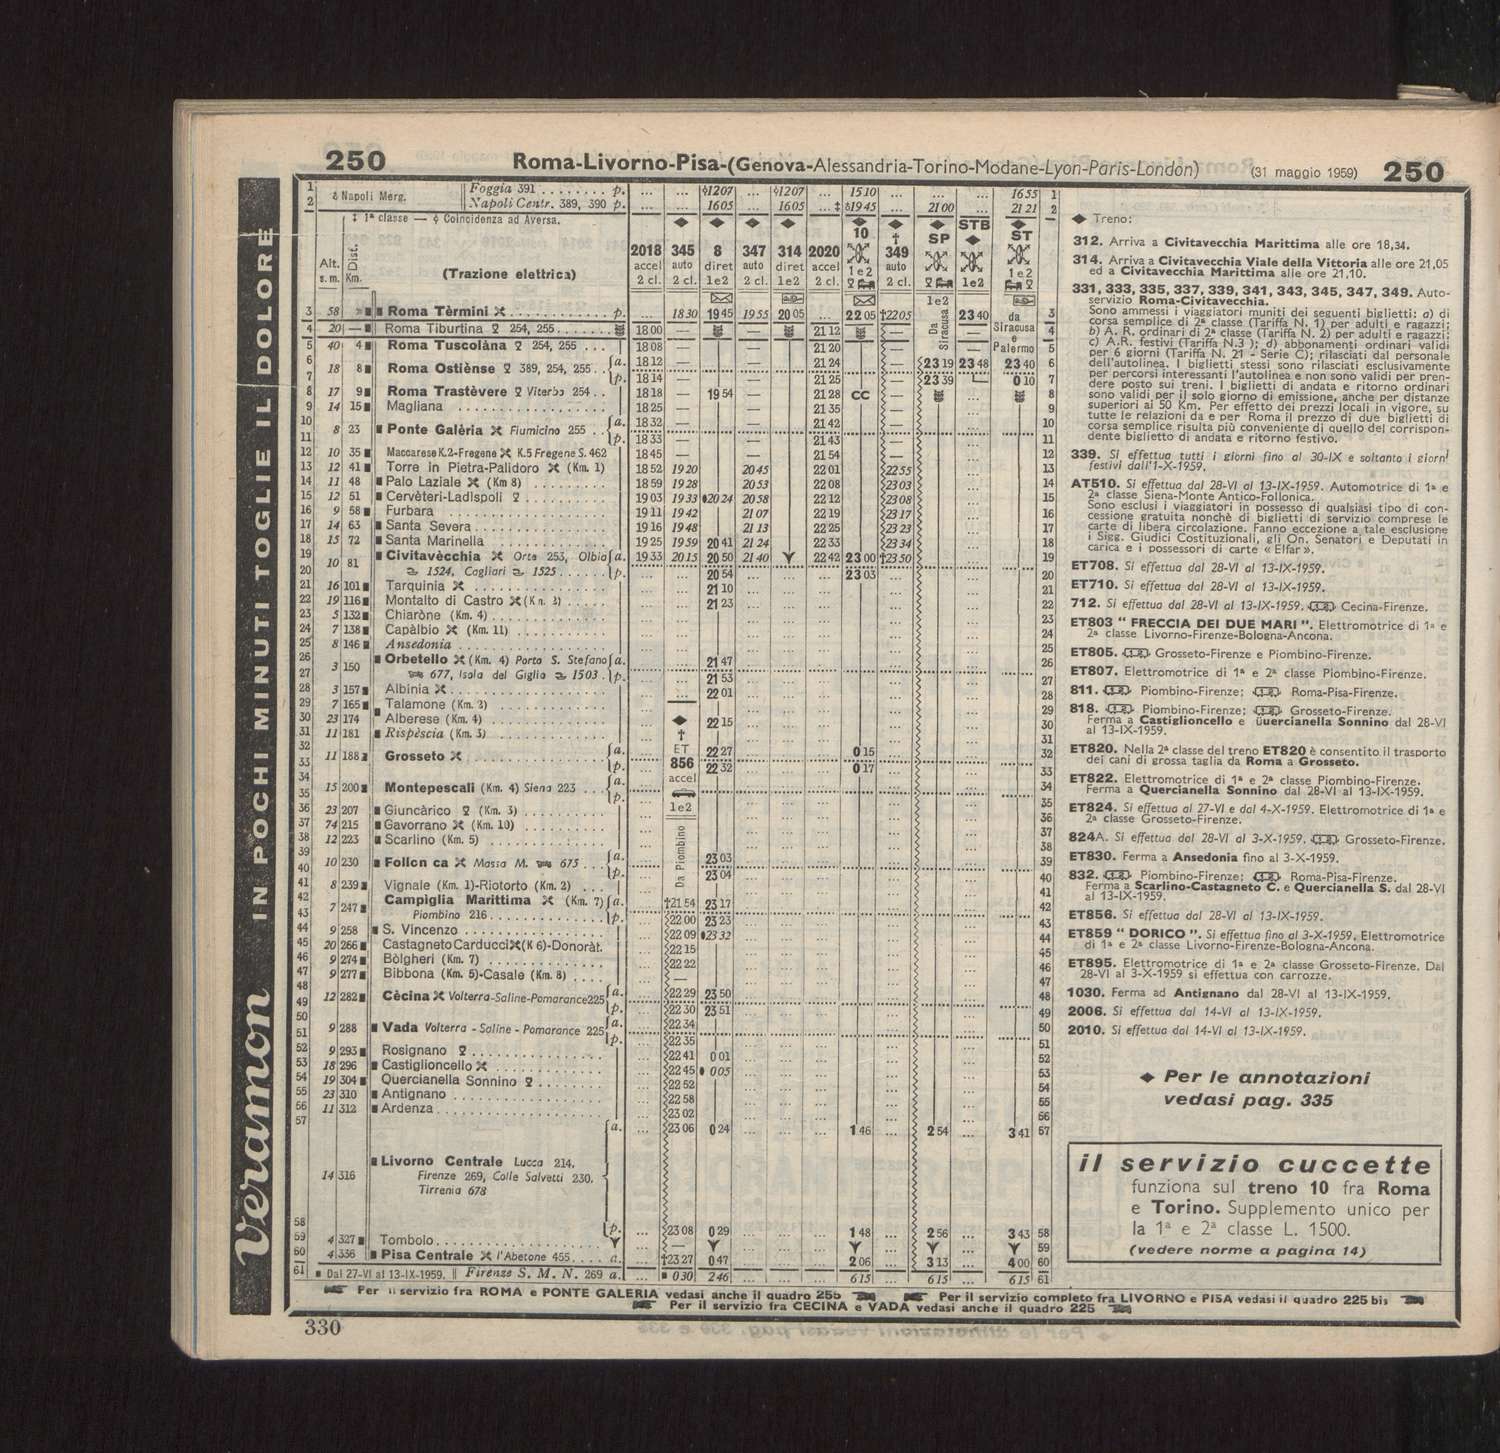 250 Roma-Livorno-Pisa-(Genova-Alessandria-Torino-Modane-Lyon-Paris-London) (31 maggio 1959) 250
Veramon IN POCHI MINUTI TOGLIE IL DOLORE
1 Napoli Merg. Foggia 391 ........ p. ... ... 1207 ... 1207 ... 1510 ... ... ... 1655 1
2 Napoli Centr. 389, 390 p. ... ... 1605 ... 1605 ...‡ 1945 ... 2100 ... 2121 2
‡ 1ª classe — Coincidenza ad Aversa.
Alt. s. m. Dist. Km. (Trazione elettrica)
2018 345 8 347 314 2020 10 349 SP STB ST
accel auto diret auto diret accel 1 e 2 auto 1 e 2
2 cl. 2 cl. 1e2 2 cl. 1e2 2 cl. 2 cl. 1e2
1e2
Da Siracusa
da Siracusa e Palermo
3 58 Roma Tèrmini p. ... 1830 1945 1955 2005 2205 †2205 2340 3
4 20 — Roma Tiburtina 254, 255 1800 — — 2112 — 4
5 40 4 Roma Tuscolàna 254, 255 ... 1808 — — 2120 — 5
6 18 8 Roma Ostiènse 389, 254, 255 a. 1812 — — 2124 — 2319 2348 2340 6
7 p. 1814 — — 2125 — 2339 010 7
8 17 9 Roma Trastèvere Viterbo 254 .. 1818 — 1954 — 2128 CC — 8
9 14 15 Magliana 1825 2135 9
10 8 23 Ponte Galèria Fiumicino 255 .. a. 1832 — — 2142 — 10
11 p. 1833 — — 2143 — 11
12 10 35 Maccarese K.2-Fregene K.5 Fregene S. 462 1845 — — 2154 — 12
13 12 41 Torre in Pietra-Palidoro (Km. 1) 1852 1920 2045 2201 2255 13
14 11 48 Palo Laziale (Km 8) 1859 1928 2053 2208 2303 14
15 12 51 Cervèteri-Ladispoli 1903 1933 2024 2058 2212 2308 15
16 9 58 Furbara 1911 1942 2107 2219 2317 16
17 14 63 Santa Severa 1916 1948 2113 2225 2323 17
18 15 72 Santa Marinella 1925 1959 2041 2124 2233 2334 18
19 10 81 Civitavècchia Orte 253, Olbia a. 1933 2015 2050 2140 2242 2300 †2350 19
20 1524, Cagliari 1525 p. 2054 2303 20
21 16 101 Tarquinia 2110 21
22 19 116 Montalto di Castro (Km. 3) 2123 22
23 5 132 Chiaròne (Km. 4) 23
24 7 138 Capàlbio (Km. 11) 24
25 8 146 Ansedonia 25
26 3 150 Orbetello (Km. 4) Porto S. Stefano a. 2147 26
27 677, Isola del Giglio 1503 . p. 2153 27
28 3 157 Albinia 2201 28
29 7 165 Talamone (Km. 3) 29
30 23 174 Alberese (Km. 4) 2215 30
31 11 181 Rispèscia (Km. 3) † 31
32 11 188 Grosseto a. ET 2227 015 32
33 p. 856 2232 017 33
34 15 200 Montepescali (Km. 4) Siena 223 ... a. accel 34
35 p. 35
36 23 207 Giuncàrico (Km. 3) 1e2 36
37 74 215 Gavorrano (Km. 10) 37
38 12 223 Scarlino (Km. 5) Da Piombino 38
39 10 230 Follonica Massa M. 675 ... a. 2303 39
40 p. 2304 40
41 8 239 Vignale (Km. 1)-Riotorto (Km. 2) ... 41
42 7 247 Campiglia Marittima (Km. 7) a. †2154 2317 42
43 Piombino 216 p. 2200 2323 43
44 9 258 S. Vincenzo 2209 2332 44
45 20 266 Castagneto Carducci (K 6)-Donoràt. 2215 45
46 9 274 Bòlgheri (Km. 7) 2222 46
47 9 277 Bibbona (Km. 5)-Casale (Km. 8) — 47
48 12 282 Cècina Volterra-Saline-Pomarance 225 a. 2229 2350 48
49 p. 2230 2351 49
50 9 288 Vada Volterra - Saline - Pomarance 225 a. 2234 50
51 p. 2235 51
52 9 293 Rosignano 2241 001 52
53 18 296 Castiglioncello 2245 005 53
54 19 304 Quercianella Sonnino 2252 54
55 23 310 Antignano 2258 55
56 11 312 Ardenza 2302 56
57 a. 2306 024 146 254 341 57
14 316 Livorno Centrale Lucca 214,
Firenze 269, Colle Salvetti 230.
Tirrenia 678
58 p. 2308 029 148 256 343 58
59 4 327 Tombolo — 59
60 4 336 Pisa Centrale l'Abetone 455 a. †2327 047 206 313 400 60
61 Dal 27-VI al 13-IX-1959. Firenze S. M. N. 269 a. 030 246 615 615 615 61
Per il servizio fra ROMA e PONTE GALERIA vedasi anche il quadro 255 Per il servizio completo fra LIVORNO e PISA vedasi il quadro 225 bis
Per il servizio fra CECINA e VADA vedasi anche il quadro 225
330
Treno:
312. Arriva a Civitavecchia Marittima alle ore 18,34.
314. Arriva a Civitavecchia Viale della Vittoria alle ore 21,05
ed a Civitavecchia Marittima alle ore 21,10.
331, 333, 335, 337, 339, 341, 343, 345, 347, 349. Auto-
servizio Roma-Civitavecchia.
Sono ammessi i viaggiatori muniti dei seguenti biglietti: a) di
corsa semplice di 2ª classe (Tariffa N. 1) per adulti e ragazzi;
b) A. R. ordinari di 2ª classe (Tariffa N. 2) per adulti e ragazzi;
c) A.R. festivi (Tariffa N.3 ); d) abbonamenti ordinari validi
per 6 giorni (Tariffa N. 21 - Serie C); rilasciati dal personale
dell'autolinea. I biglietti stessi sono rilasciati esclusivamente
per percorsi interessanti l'autolinea e non sono validi per pren-
dere posto sui treni. I biglietti di andata e ritorno ordinari
sono validi per il solo giorno di emissione, anche per distanze
superiori ai 50 Km. Per effetto dei prezzi locali in vigore, su
tutte le relazioni da e per Roma il prezzo di due biglietti di
corsa semplice risulta più conveniente di quello del corrispon-
dente biglietto di andata e ritorno festivo.
339. Si effettua tutti i giorni fino al 30-IX e soltanto i giorni
festivi dall'1-X-1959.
AT510. Si effettua dal 28-VI al 13-IX-1959. Automotrice di 1ª e
2ª classe Siena-Monte Antico-Follonica.
Sono esclusi i viaggiatori in possesso di qualsiasi tipo di con-
cessione gratuita nonchè di biglietti di servizio comprese le
carte di libera circolazione. Fanno eccezione a tale esclusione
i Sigg. Giudici Costituzionali, gli On. Senatori e Deputati in
carica e i possessori di carte « Elfar ».
ET708. Si effettua dal 28-VI al 13-IX-1959.
ET710. Si effettua dal 28-VI al 13-IX-1959.
712. Si effettua dal 28-VI al 13-IX-1959. Cecina-Firenze.
ET803 " FRECCIA DEI DUE MARI ". Elettromotrice di 1ª e
2ª classe Livorno-Firenze-Bologna-Ancona.
ET805. Grosseto-Firenze e Piombino-Firenze.
ET807. Elettromotrice di 1ª e 2ª classe Piombino-Firenze.
811. Piombino-Firenze; Roma-Pisa-Firenze.
818. Piombino-Firenze; Grosseto-Firenze.
Ferma a Castiglioncello e Quercianella Sonnino dal 28-VI
al 13-IX-1959.
ET820. Nella 2ª classe del treno ET820 è consentito il trasporto
dei cani di grossa taglia da Roma a Grosseto.
ET822. Elettromotrice di 1ª e 2ª classe Piombino-Firenze.
Ferma a Quercianella Sonnino dal 28-VI al 13-IX-1959.
ET824. Si effettua al 27-VI e dal 4-X-1959. Elettromotrice di 1ª e
2ª classe Grosseto-Firenze.
824A. Si effettua dal 28-VI al 3-X-1959. Grosseto-Firenze.
ET830. Ferma a Ansedonia fino al 3-X-1959.
832. Piombino-Firenze; Roma-Pisa-Firenze.
Ferma a Scarlino-Castagneto C. e Quercianella S. dal 28-VI
al 13-IX-1959.
ET856. Si effettua dal 28-VI al 13-IX-1959.
ET859 " DORICO ". Si effettua fino al 3-X-1959. Elettromotrice
di 1ª e 2ª classe Livorno-Firenze-Bologna-Ancona.
ET895. Elettromotrice di 1ª e 2ª classe Grosseto-Firenze. Dal
28-VI al 3-X-1959 si effettua con carrozze.
1030. Ferma ad Antignano dal 28-VI al 13-IX-1959.
2006. Si effettua dal 14-VI al 13-IX-1959.
2010. Si effettua dal 14-VI al 13-IX-1959.
Per le annotazioni
vedasi pag. 335
il servizio cuccette
funziona sul treno 10 fra Roma
e Torino. Supplemento unico per
la 1ª e 2ª classe L. 1500.
(vedere norme a pagina 14)